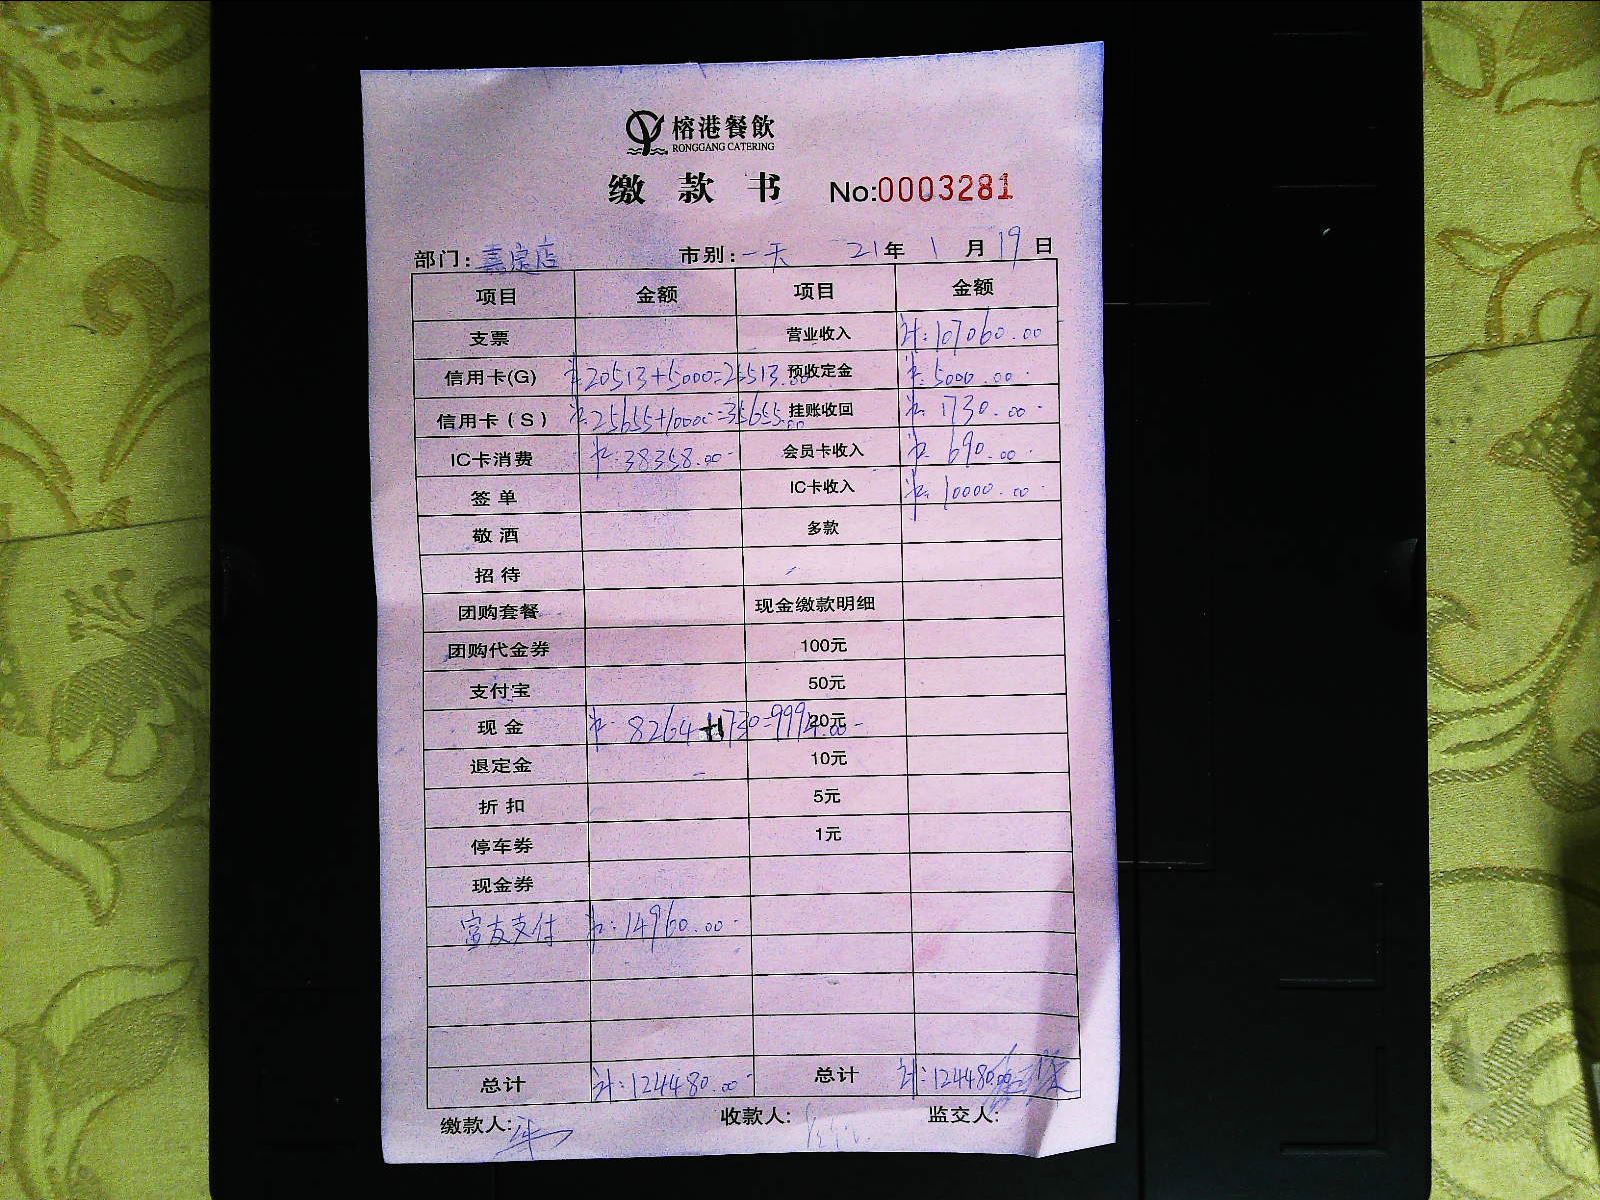 榕港餐飲
RONGGANG CATERING
缴款书 No:0003281
部门:嘉定店 市别:一天 21年1月19日
项目 金额 项目 金额
支票 营业收入 计:107060.00
信用卡(G) 计:20513+5000=25513.00 预收定金 计:5000.00
信用卡(S) 计:25655+10000=35655.00 挂账收回 计:1730.00
IC卡消费 计:38358.00 会员卡收入 计:690.00
签单 IC卡收入 计:10000.00
敬酒 多款
招待
团购套餐 现金缴款明细
团购代金券 100元
支付宝 50元
现金 计:8264+1730=9994.00 20元
退定金 10元
折扣 5元
停车券 1元
现金券
富友支付 计:14960.00
总计 计:124480.00 总计 计:124480.00
缴款人: 收款人: 监交人: